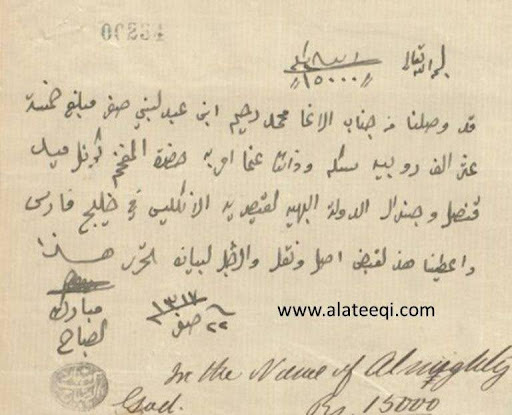 بسم الله تعالى
١٥٠٠٠
قد وصلنا من جناب الاغا محمد رحيم ابن عبد النبي صفر مبلغ خمسة
عشر الف روبيه سكه وذالك عن امر به حضرة المفخم كرنل ميد
قنصل وجنرال الدولة البهيه القيصريه الانكليس في خليج فارس
واعطينا هذ لقبض اصل ونقل والاجل لبيانه تحرر هذا
٢٢ صفر ١٣١٧
مبارك
الصباح
www.alateeqi.com
In the Name of Almighty
God. Rs. 15000